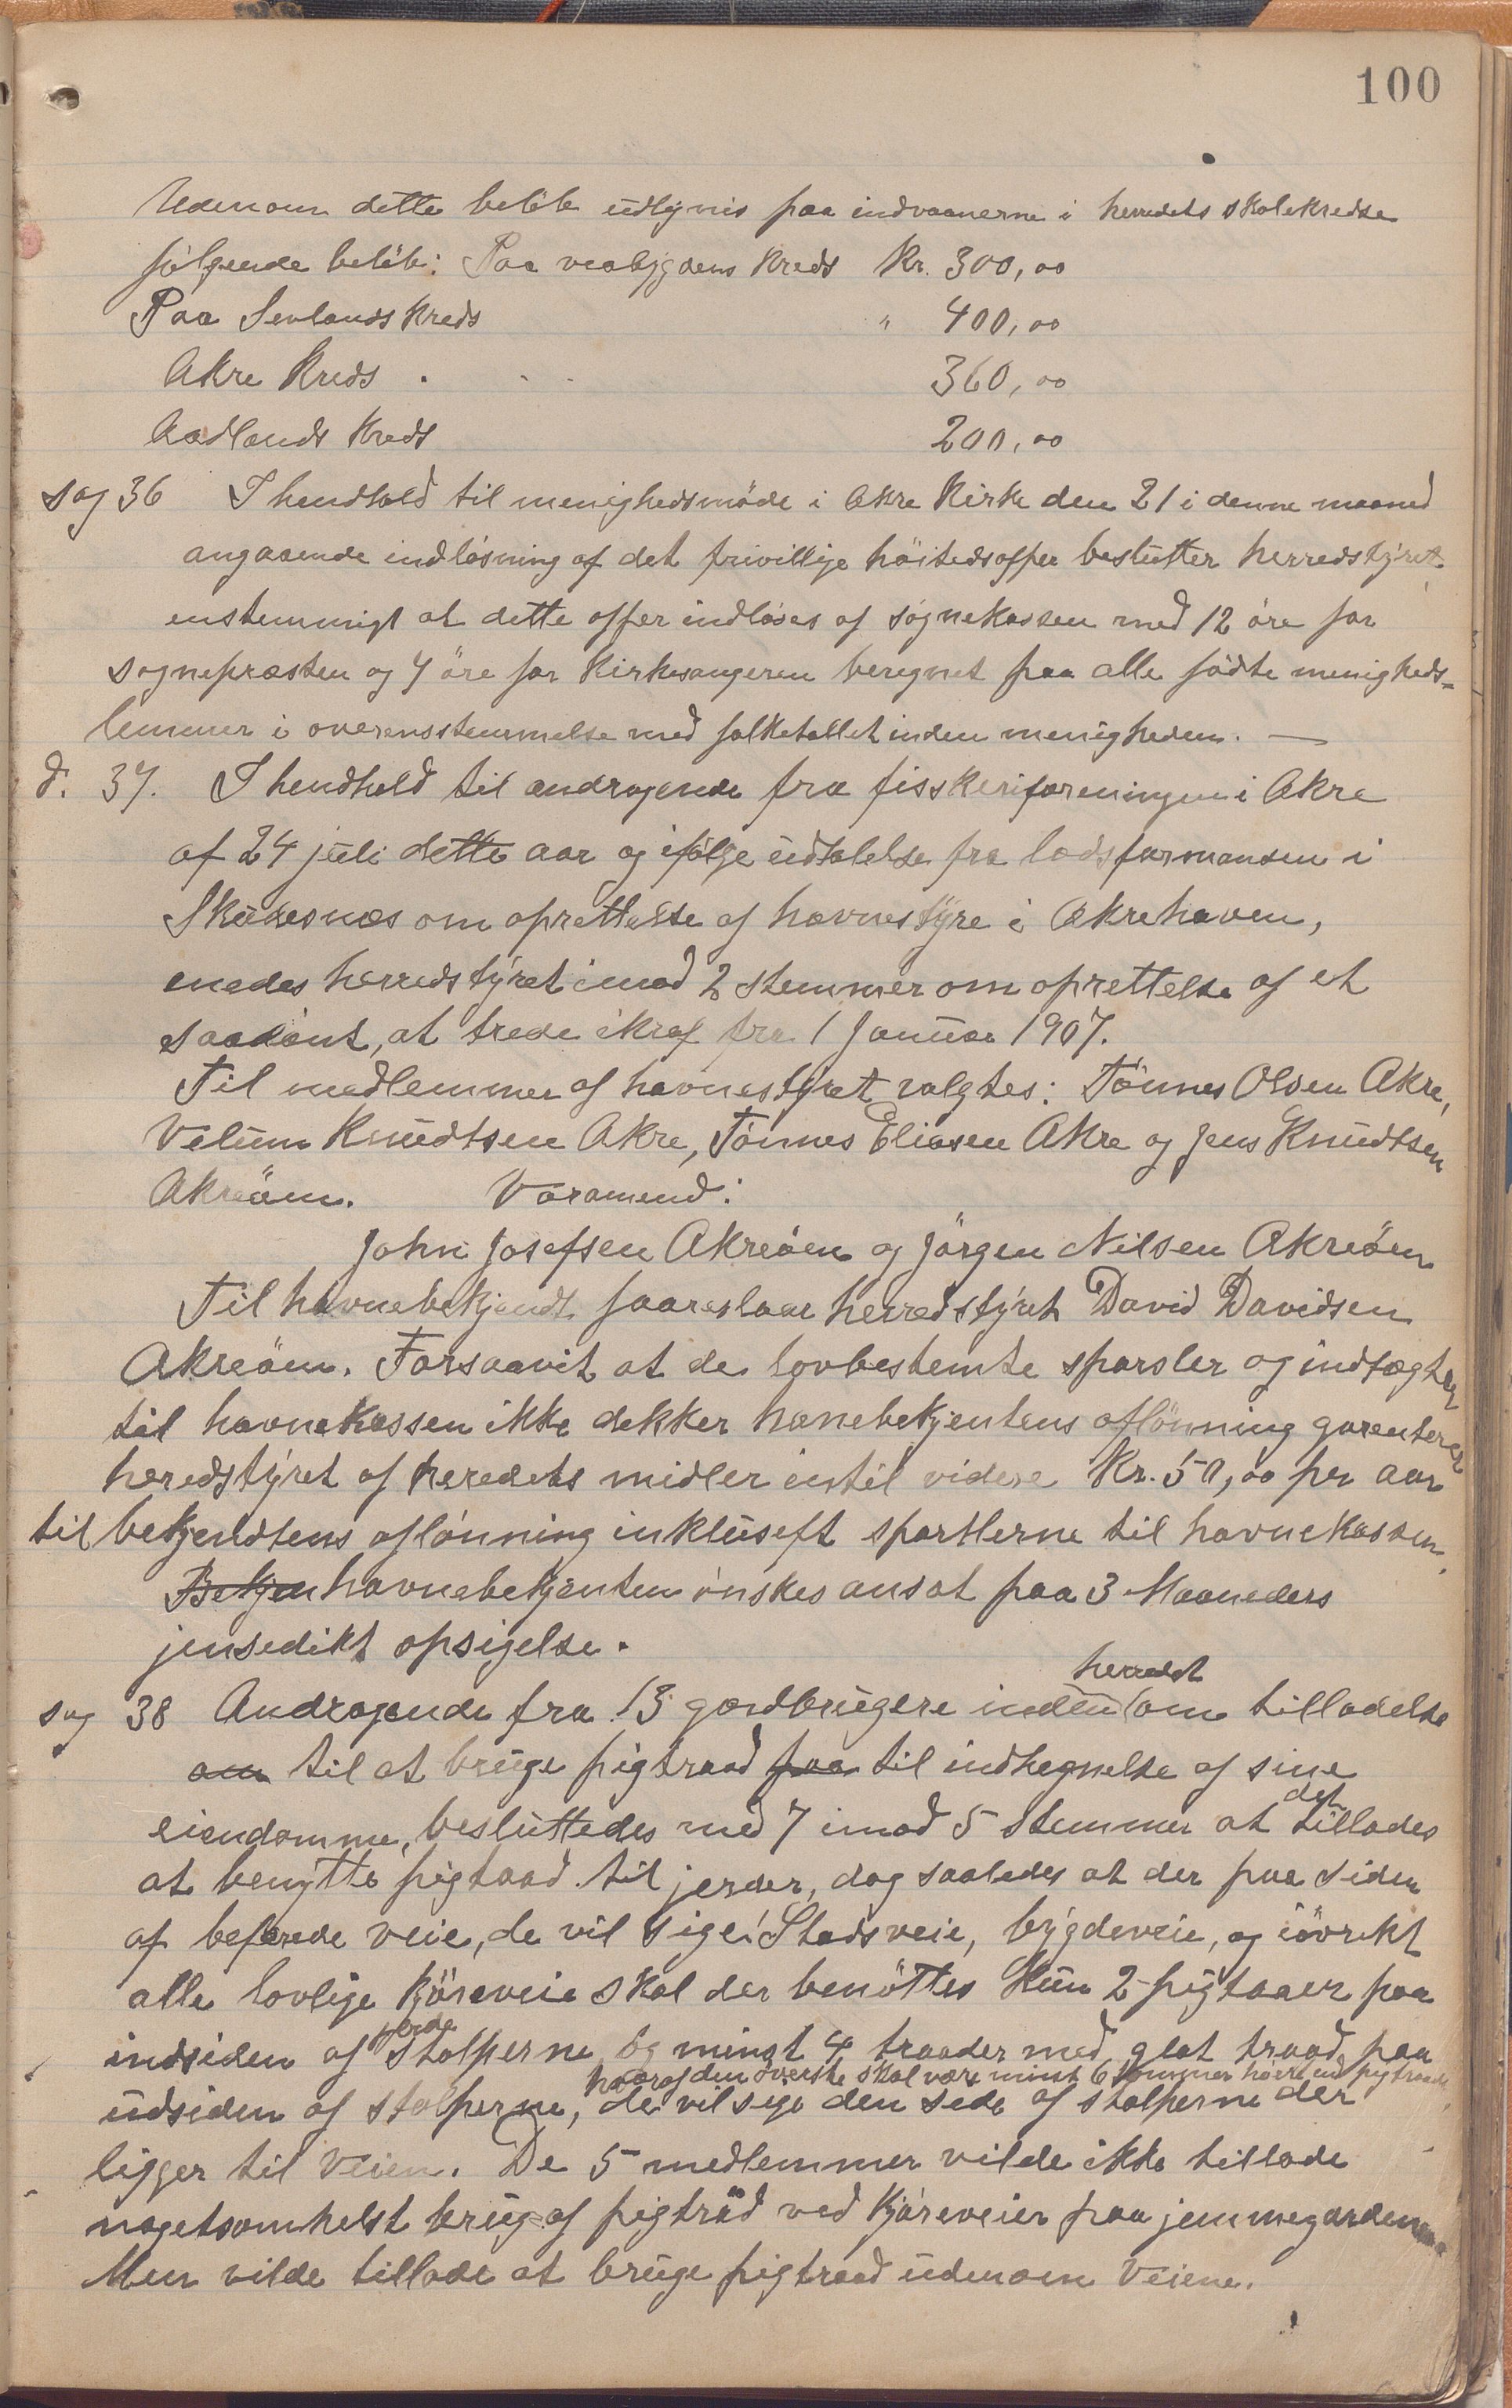 100
Udenom dette belöb udlignis paa indvaanerne i herredets skolekredse
følgende belöb: Paa veabygdens Kreds Kr. 300,00
Paa Sevlands Kreds " 400,00
Akre Kreds . . . 360,00
Aadlands Kreds 200,00
sag 36 I hendhold til menighedsmöde i Akre Kirke den 21 i denne maaned
angaaende indlösning af det frivillige höitedsoffer beslutter herredstyret
enstemmigt at dette offer indlöses af sognekassen med 12 öre for
sognepræsten og 4 öre for Kirkesangeren beregnet paa alle födte menigheds-
lemmer i overensstemmelse med folketallet inden menigheden. —
d. 37. I hendhold til andragende fra fisskeriforeningen i Akre
af 24 juli dette aar og ifölge udtalelse fra lodsformansen i
Skudesnes om oprettelse af havnestyre i Akrehavn,
enedes herredstyret imod 2 stemmer om oprettelse af et
saadant, at trede ikraf fra 1 Januar 1907.
Til medlemmer af havnestyret valgtes: Tönnes Olsen Akre,
Velum Knudtsen Akre, Tönnes Eliasen Akre og Jens Knudtsen
Akreöen. Varamend:
John Josefsen Akreöen og Jörgen Nilsen Akreöen
Til havnebekjendt foareslaar herredstyret David Davidsen
Akreöen. Forsaavit at de lovbestemte sparsler og indtægter
til havnekassen ikke dekker havnebekjentens aflönning garenterer
heredstyret af heredets midler intil videre Kr. 50,00 per aar
til bekjendtens aflönning inkluseft spartlerne til havnekassen.
Bekjen havnebekjenten önskes ansat paa 3 Maaneders
jensedikt opsigelse.
herredet
sag 38 Andragende fra 13 gardbrugere inden om tilladelse
om til at bruge pigtraad paa til indhegnelse af sine
det
eiendomme, besluttedes med 7 imod 5 stemmer at tillades
at benytte pigtaad til jerder, dog saaledes at der paa siden
af beferede veie, de vil sige: Stadsveie, bygdeveie, og iövrikt
alle lovlige Kjöreveie skal der benöttes Kun 2 pigtaaer paa
jerde
indsiden af Stolperne og minst 4 traader med glat traad paa
hvoraf den överste skal være minst 6 tommer höire end pigtraade
udsiden af stolperne, de vil sige den side af stolperne der
ligger til Veien. De 5 medlemmer vilde ikke tillade
nogetsomhelst brug af pigtråd ved Kjöreveier paa jemmegardene
Men vilde tillade at bruge pigtraad udenom Veiene.